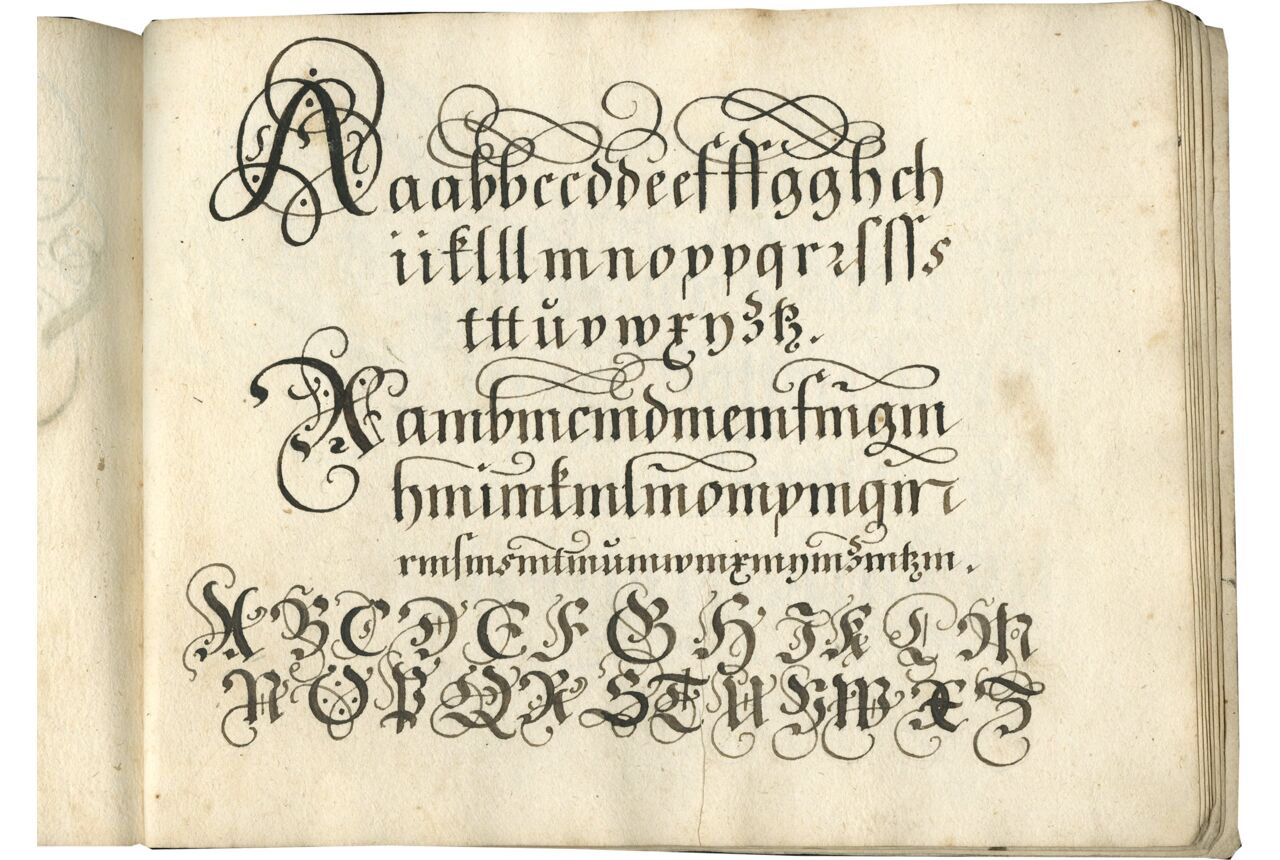 A aabbccddeefffgghch
iiklllmnoppqrꝛſſſs
tttůvwxyztz.
A ambmcmdmemfmgm
hmimkmlmompmqmꝛ
rmſmsmtmumwmxmymzmtzm.
A B C D E F G H I K L M
N O P Q R S T U V W X Z